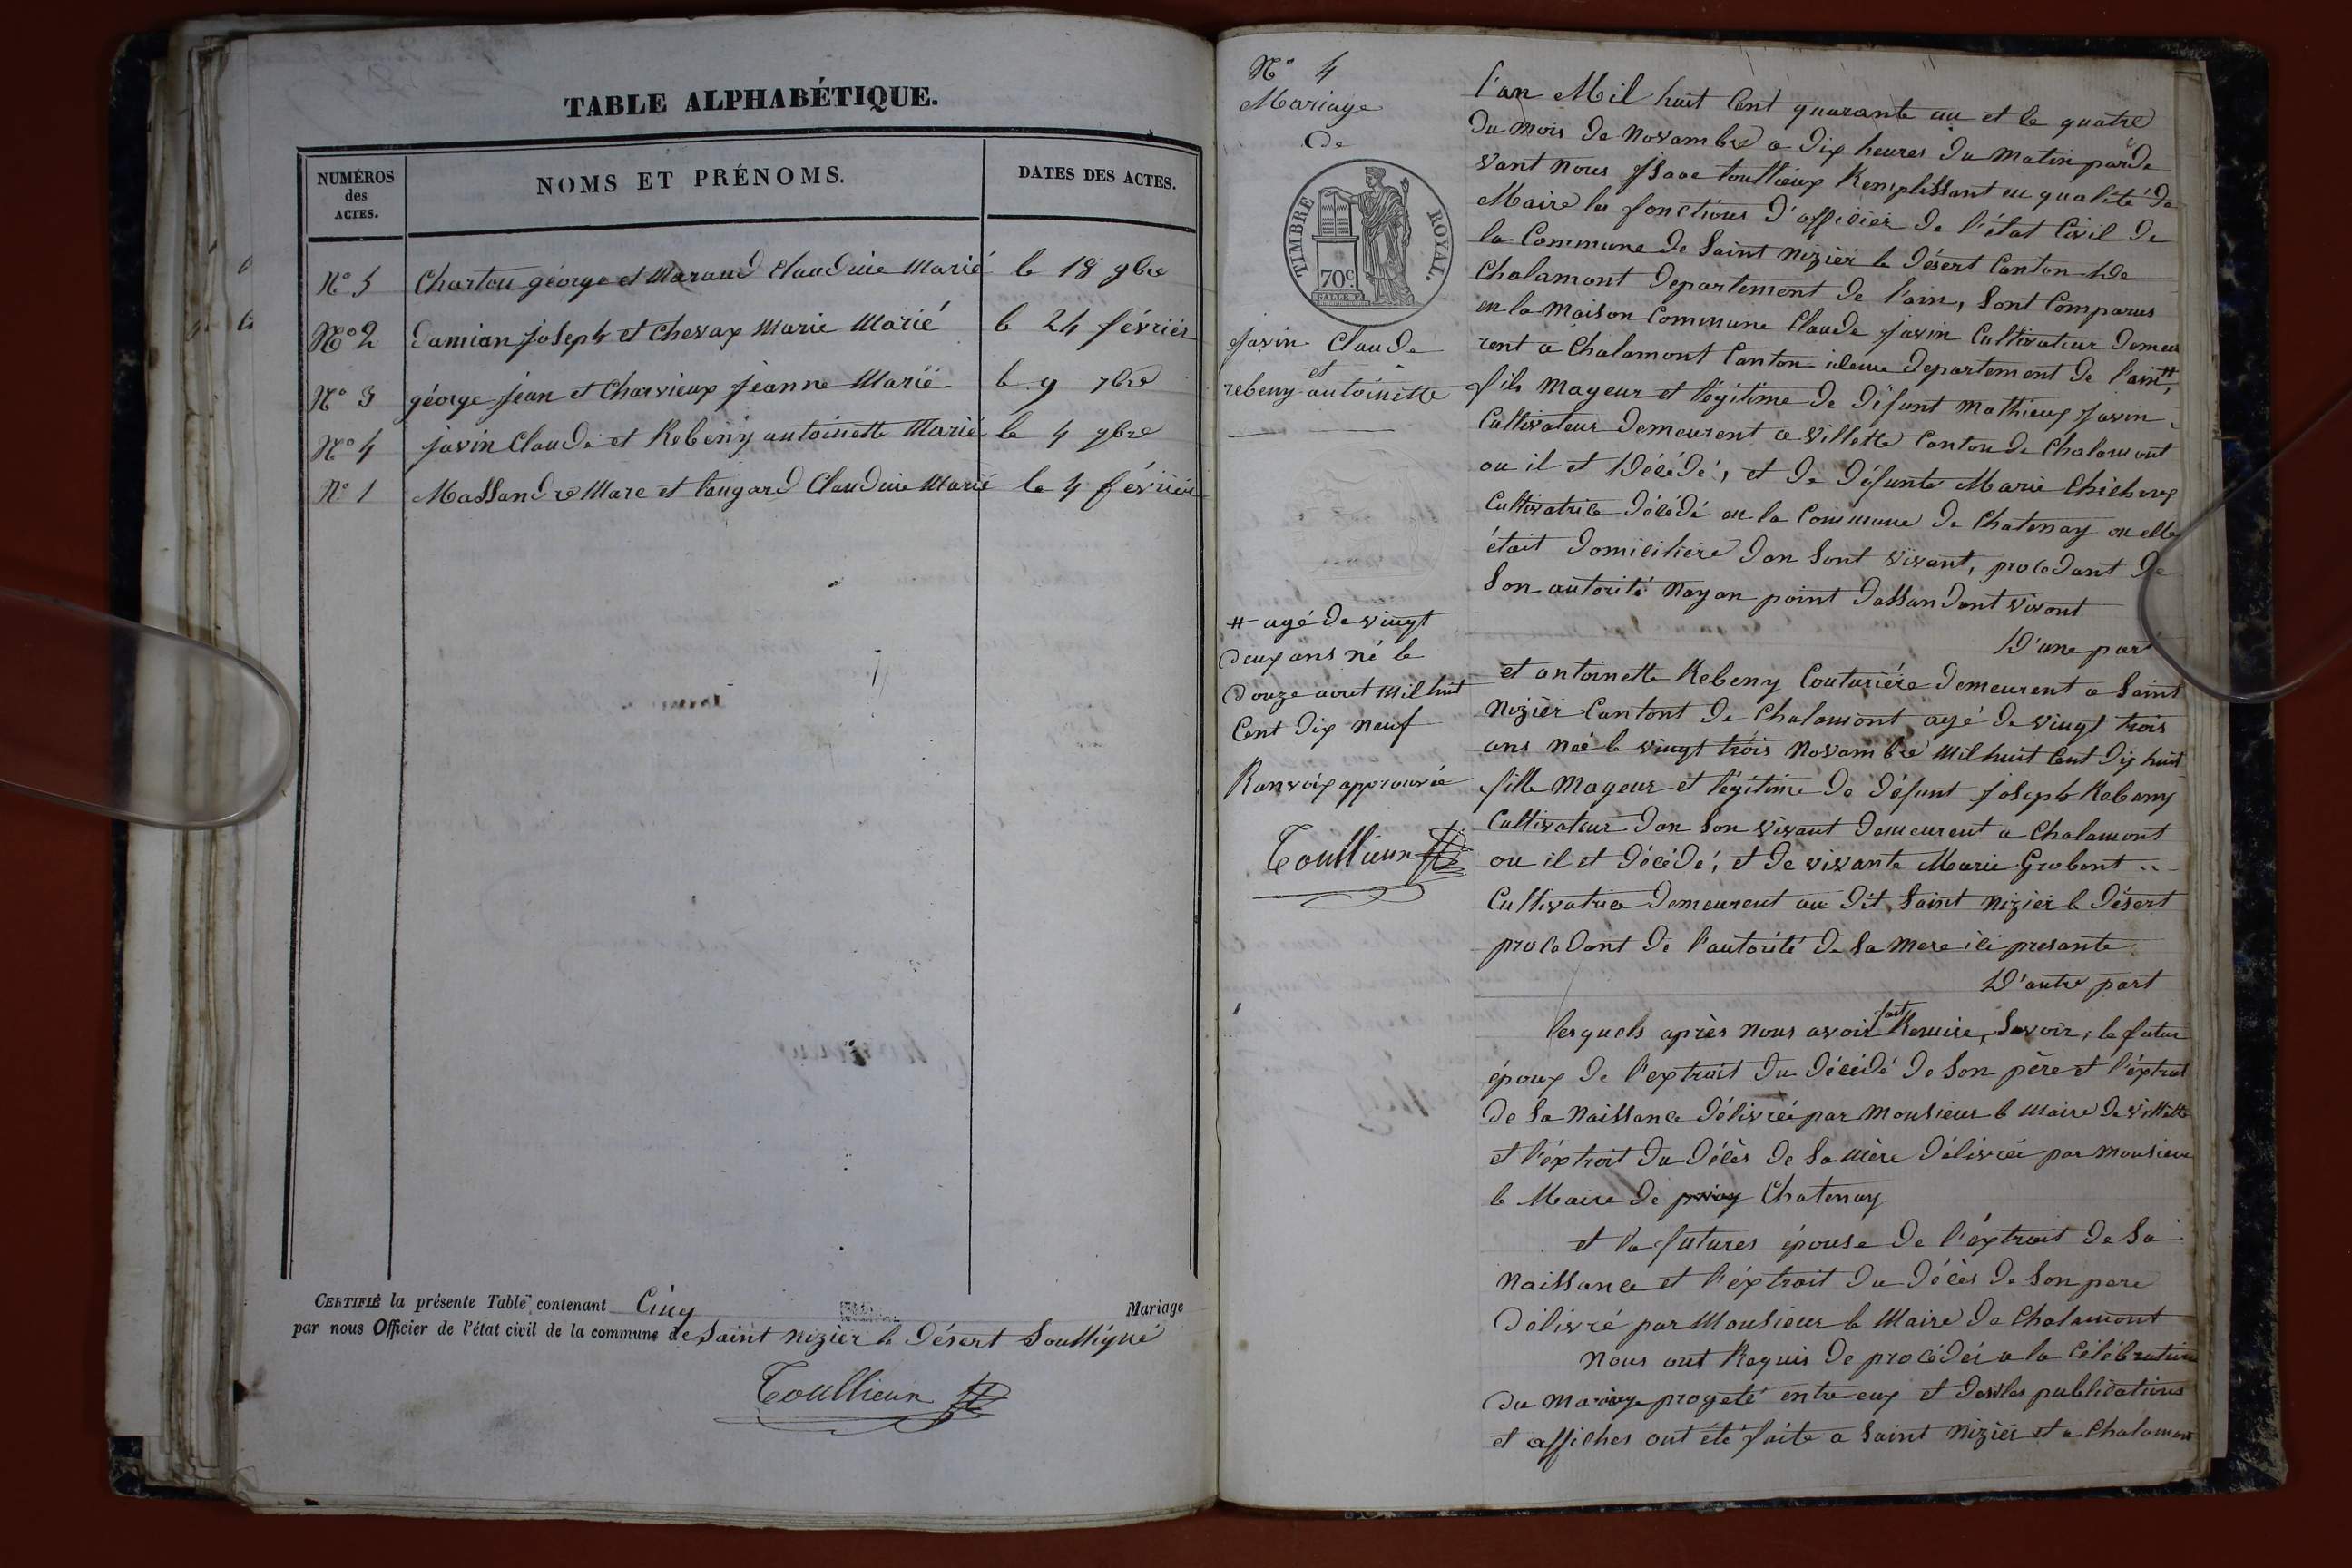 TABLE ALPHABÉTIQUE.
NUMÉROS des ACTES.
NOMS ET PRÉNOMS.
DATES DES ACTES.
N° 5 Charton géorge et Maraud Claudine Marié le 18 9bre
N° 2 Damian joseph et Chevax Marie Marié le 24 févriér
N° 3 géorge jean et Charvieux jeanne Marié le 9 7bre
N° 4 javin Claude et Rebeny antoinette Marié le 4 9bre
N° 1 Massandre Marc et Claudine Marié le 4 févriér
CERTIFIÉ la présente Table contenant Cinq Mariage
par nous Officier de l'état civil de la commune de Saint nizièr le Désert Soussigné
Toullieux
N° 4
Mariage
De
TIMBRE ROYAL.
70c.
javin Claude
et
rebeny antoinette
# agé de vingt
Deux ans né le
Douze aout mil huit
Cent Dix neuf
Ranvoix approuvée
Toullieux
l'an Mil huit Cent quarante un et le quatre
Du mois de Novambre a Dix heures du matin parde
vant nous jsaac toullieux Remplissant en qualité de
Maire les fonctions D'officiér de l'état Civil de
la Commune de Saint nizièr le Désert Canton De
Chalamont Departement de l'ain, Sont Comparus
en la maison Commune Claude javin Cultivateur Demeu
rent a Chalamont Canton idem Departement de l'ain #
fils mageur et légitime de Défunt mathieux javin
Cultivateur Demeurent a villette Canton de Chalamont
ou il et Décédé, et de Défunte Marie
Cultivatrice Décédé en la Commune de Chatenay ou elle
était Domicilière Dan Sont vivant, procedant de
Son autorité nayan point dassandant vivant
D'une part
et antoinette Rebeny Couturiére Demeurent a Saint
nizièr Cantont de Chalamont agé de vingt trois
ans née le vingt trois Novambre mil huit Cent Dix huit
fille mageur et légitime de Défunt joseph Rebeny
Cultivateur Dan Son vivant Demeurent a Chalamont
ou il et Décédé, et de vivante Marie Grobont
Cultivatrice Demeurent au Dit Saint nizièr le Désert
procedant de l'autorité de Sa mere ici presante
D'autre part
lesquels après nous avoir fait Remise, Savoir, le futur
époux de l'extrait du Décédé de Son père et l'éxtrait
de Sa Naissance Délivrée par monsieur le maire de villette
et l'éxtrait du Décès de Sa mère Délivrée par monsieur
le Maire de Chatenay
et la futures épouse de l'éxtrait de Sa
Naissance et l'éxtrait du Décès de Son pere
Délivré par Monsieur le Maire de Chalamont
Nous ont Requis de procédér a la Célébration
du mariage progeté entre eux et dont les publications
et affiches ont été faite a Saint nizièr et a Chalamont